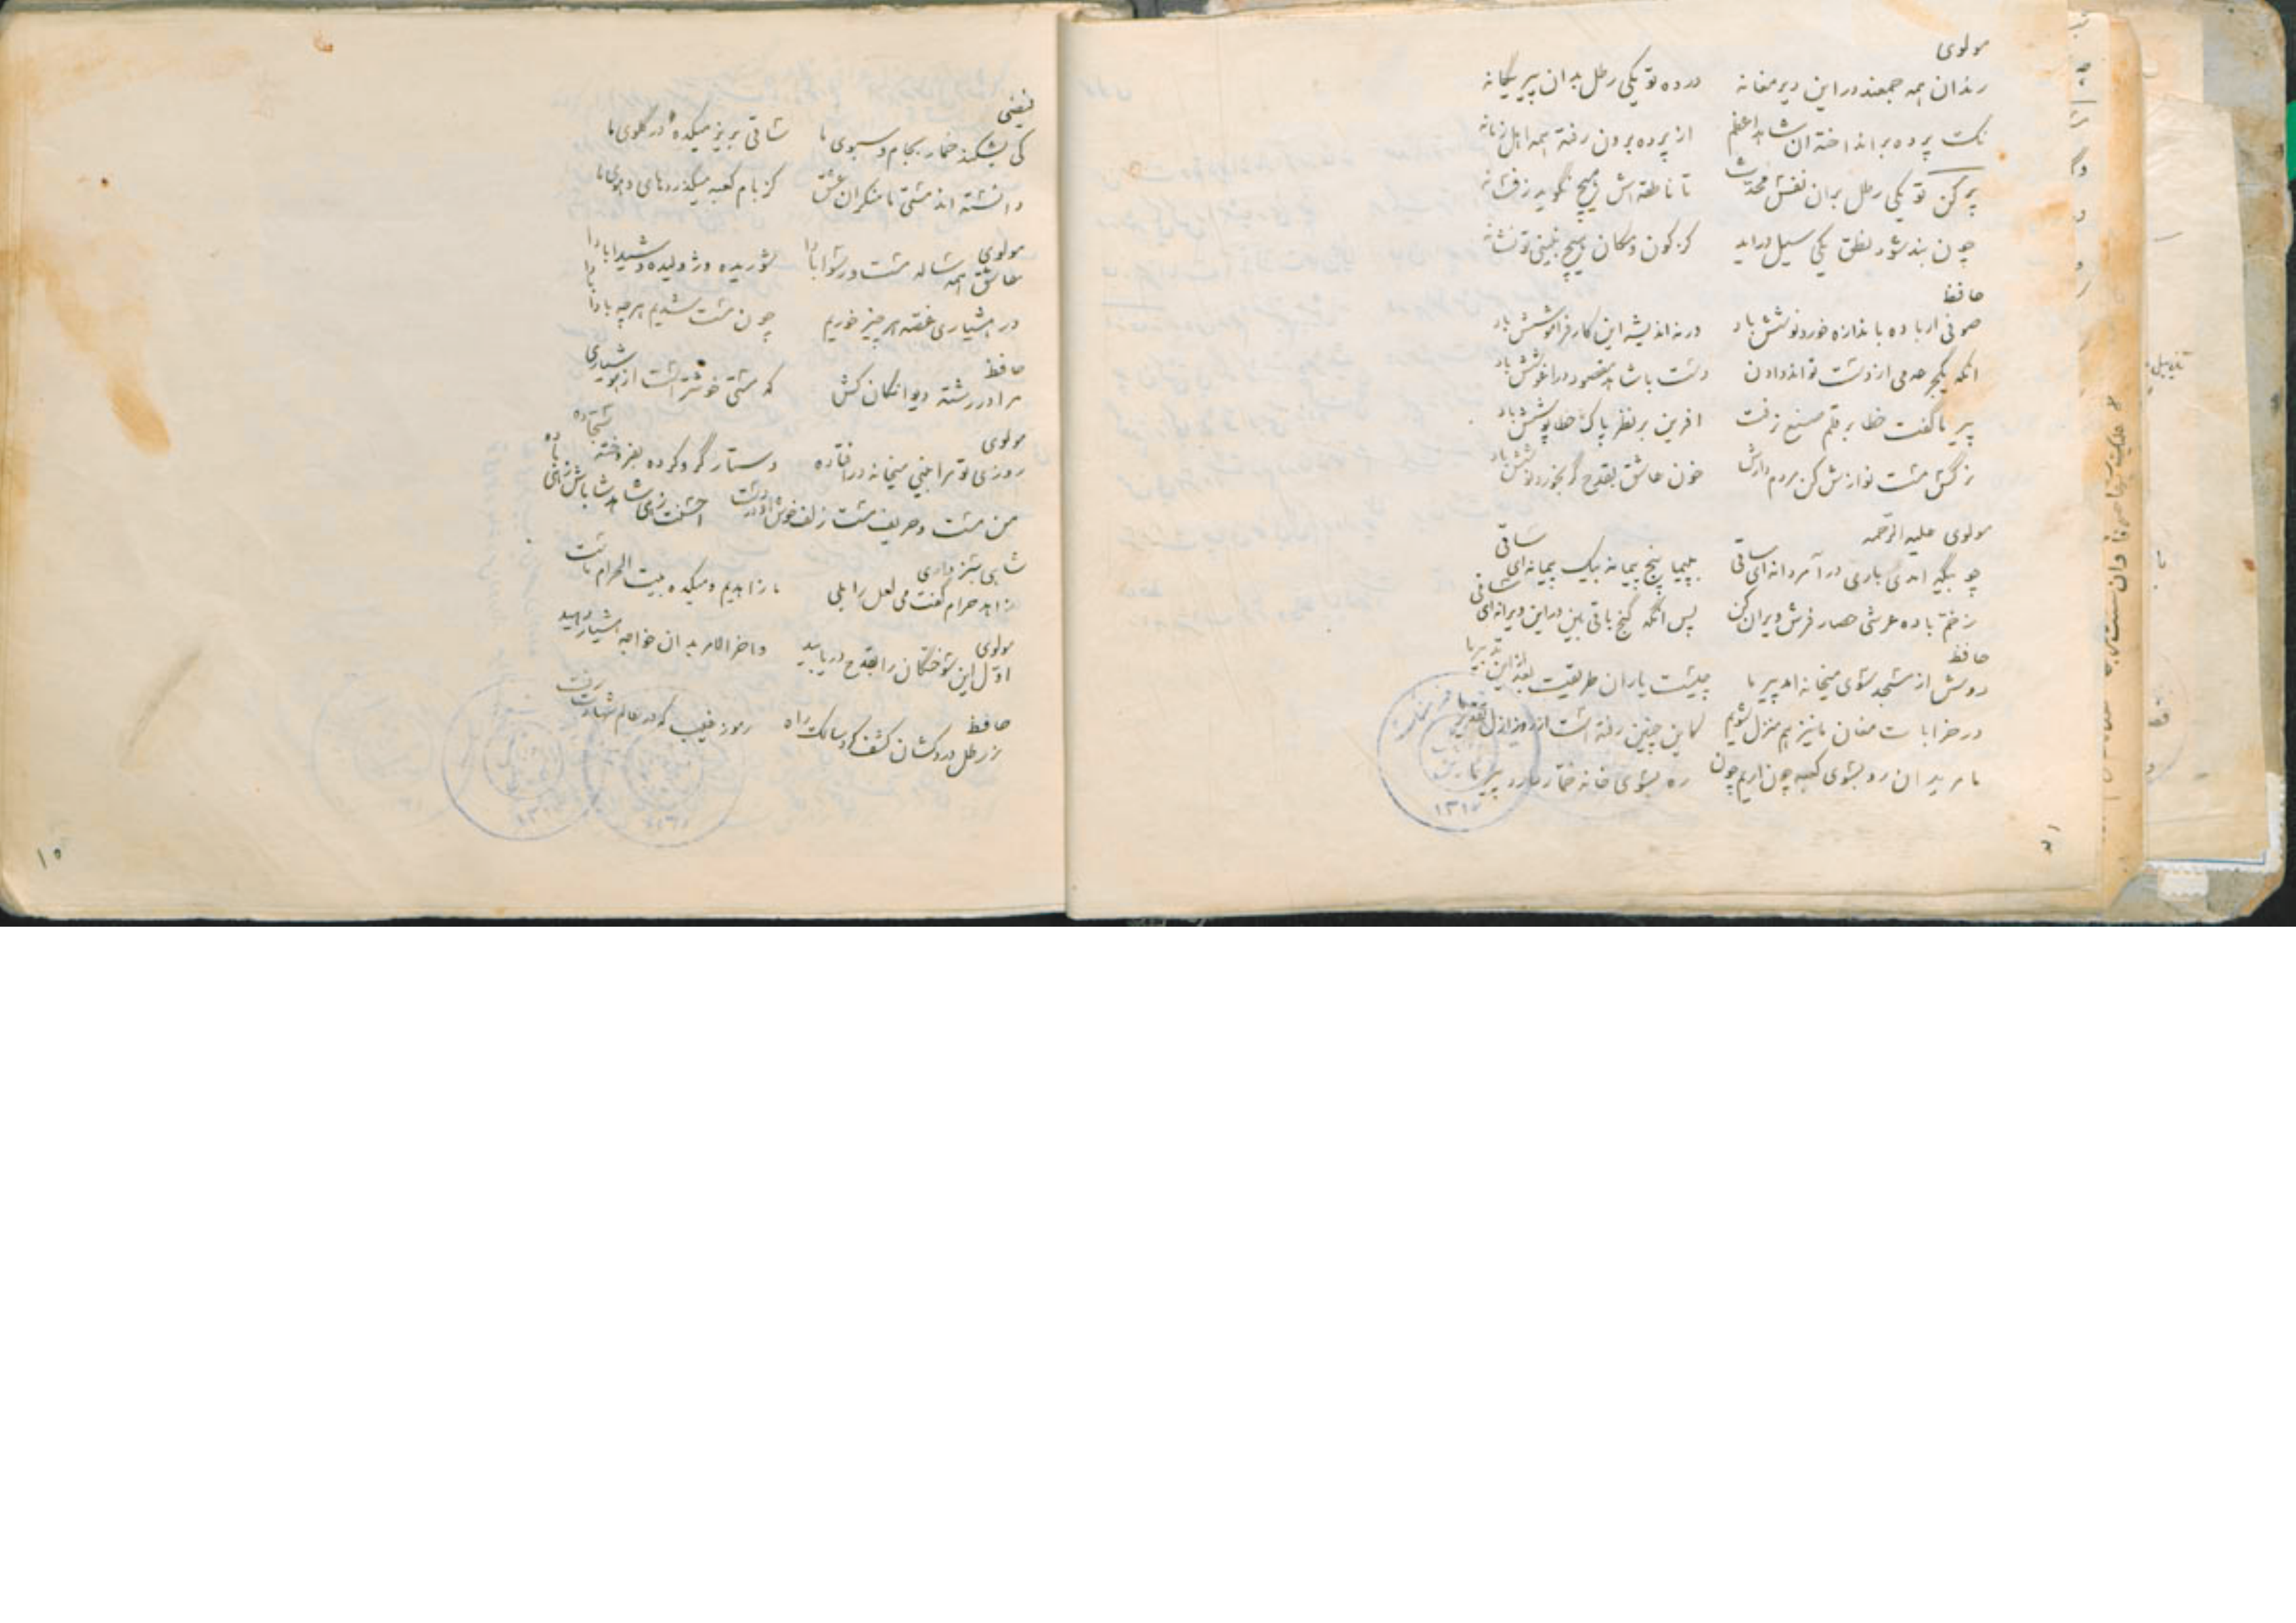 مولوی
رندان همه جمعند در این دیر مغانه درده تو یکی رطل بدان پیر یگانه
نک پرده برانداخته ان شاهد اعظم از پرده برون رفته همه اهل زمانه
پر کن تو یکی رطل بران نفس محدث تا ناطقه اش هیچ نگوید ز فسانه
چون بند شود نطق یکی سیل دراید کز کون و مکان هیچ نبینی تو نشانه
حافظ
صوفی ار باده باندازه خورد نوشش باد ورنه اندیشه این کار فراموشش باد
انکه یکجرعه می از دست تواند دادن دست با شاهد مقصود در اغوشش باد
پیر ما گفت خطا بر قلم صنع نرفت افرین بر نظر پاک خطا پوشش باد
نرگس مست نوازش کن مردم دارش خون عاشق بقدح گر بخورد نوشش باد
مولوی علیه الرحمه
چو بیگه امدی باری درآ مردانه ای ساقی بپیما پنج پیمانه بیک پیمانه ای ساقی
ز خم باده عرشی حصار فرش ویران کن پس انگه گنج باقی بین در این ویرانه ای ساقی
حافظ
دوش از مسجد سوی میخانه امد پیر ما چیست یاران طریقت بعد از این تدبیر ما
در خرابات مغان ما نیز هم منزل شویم کاین چنین رفته است از روز ازل تقدیر ما
ما مریدان رو بسوی کعبه چون اریم چون ره بسوی خانه خمار دارد پیر ما
۱۳۱۷
فیضی
کی بشکند خمار بجام و سبوی ما ساقی بریز میکده در گلوی ما
دانسته اند مستی ما منکران عشق کز بام کعبه میگذرد های و هوی ما
مولوی
عاشق همه ساله مست و رسوا بادا شوریده و ژولیده و شیدا بادا
در هشیاری غصه هر چیز خوریم چون مست شدیم هر چه بادا بادا
حافظ
مرا در رشته دیوانگان کش که مستی خوشتر است از هوشیاری
مولوی
روزی تو مرا بینی میخانه در افتاده دستار گرو کرده بفروخته سجاده
من مست و حریف مست زلف خوش او در دست احسنت زهی شاهد شاباش زهی باده
شاهی سبزواری
زاهد حرام گفت می لعل را بلی ما زاهدیم و میکده بیت الحرام ماست
مولوی
اول این سوختگان را بقدح دریابید واخر الامر بدان خواجه هشیار دهید
حافظ
ز رطل دردکشان کشف کرد سالک راه رموز غیب که در عالم شهادت رفت
۱۵